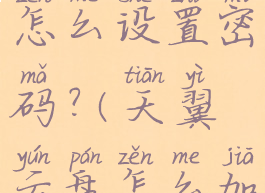 怎么设置密
mǎ tiān yì
码?(天翼
yún pán zěn me jiā
云盘怎么加